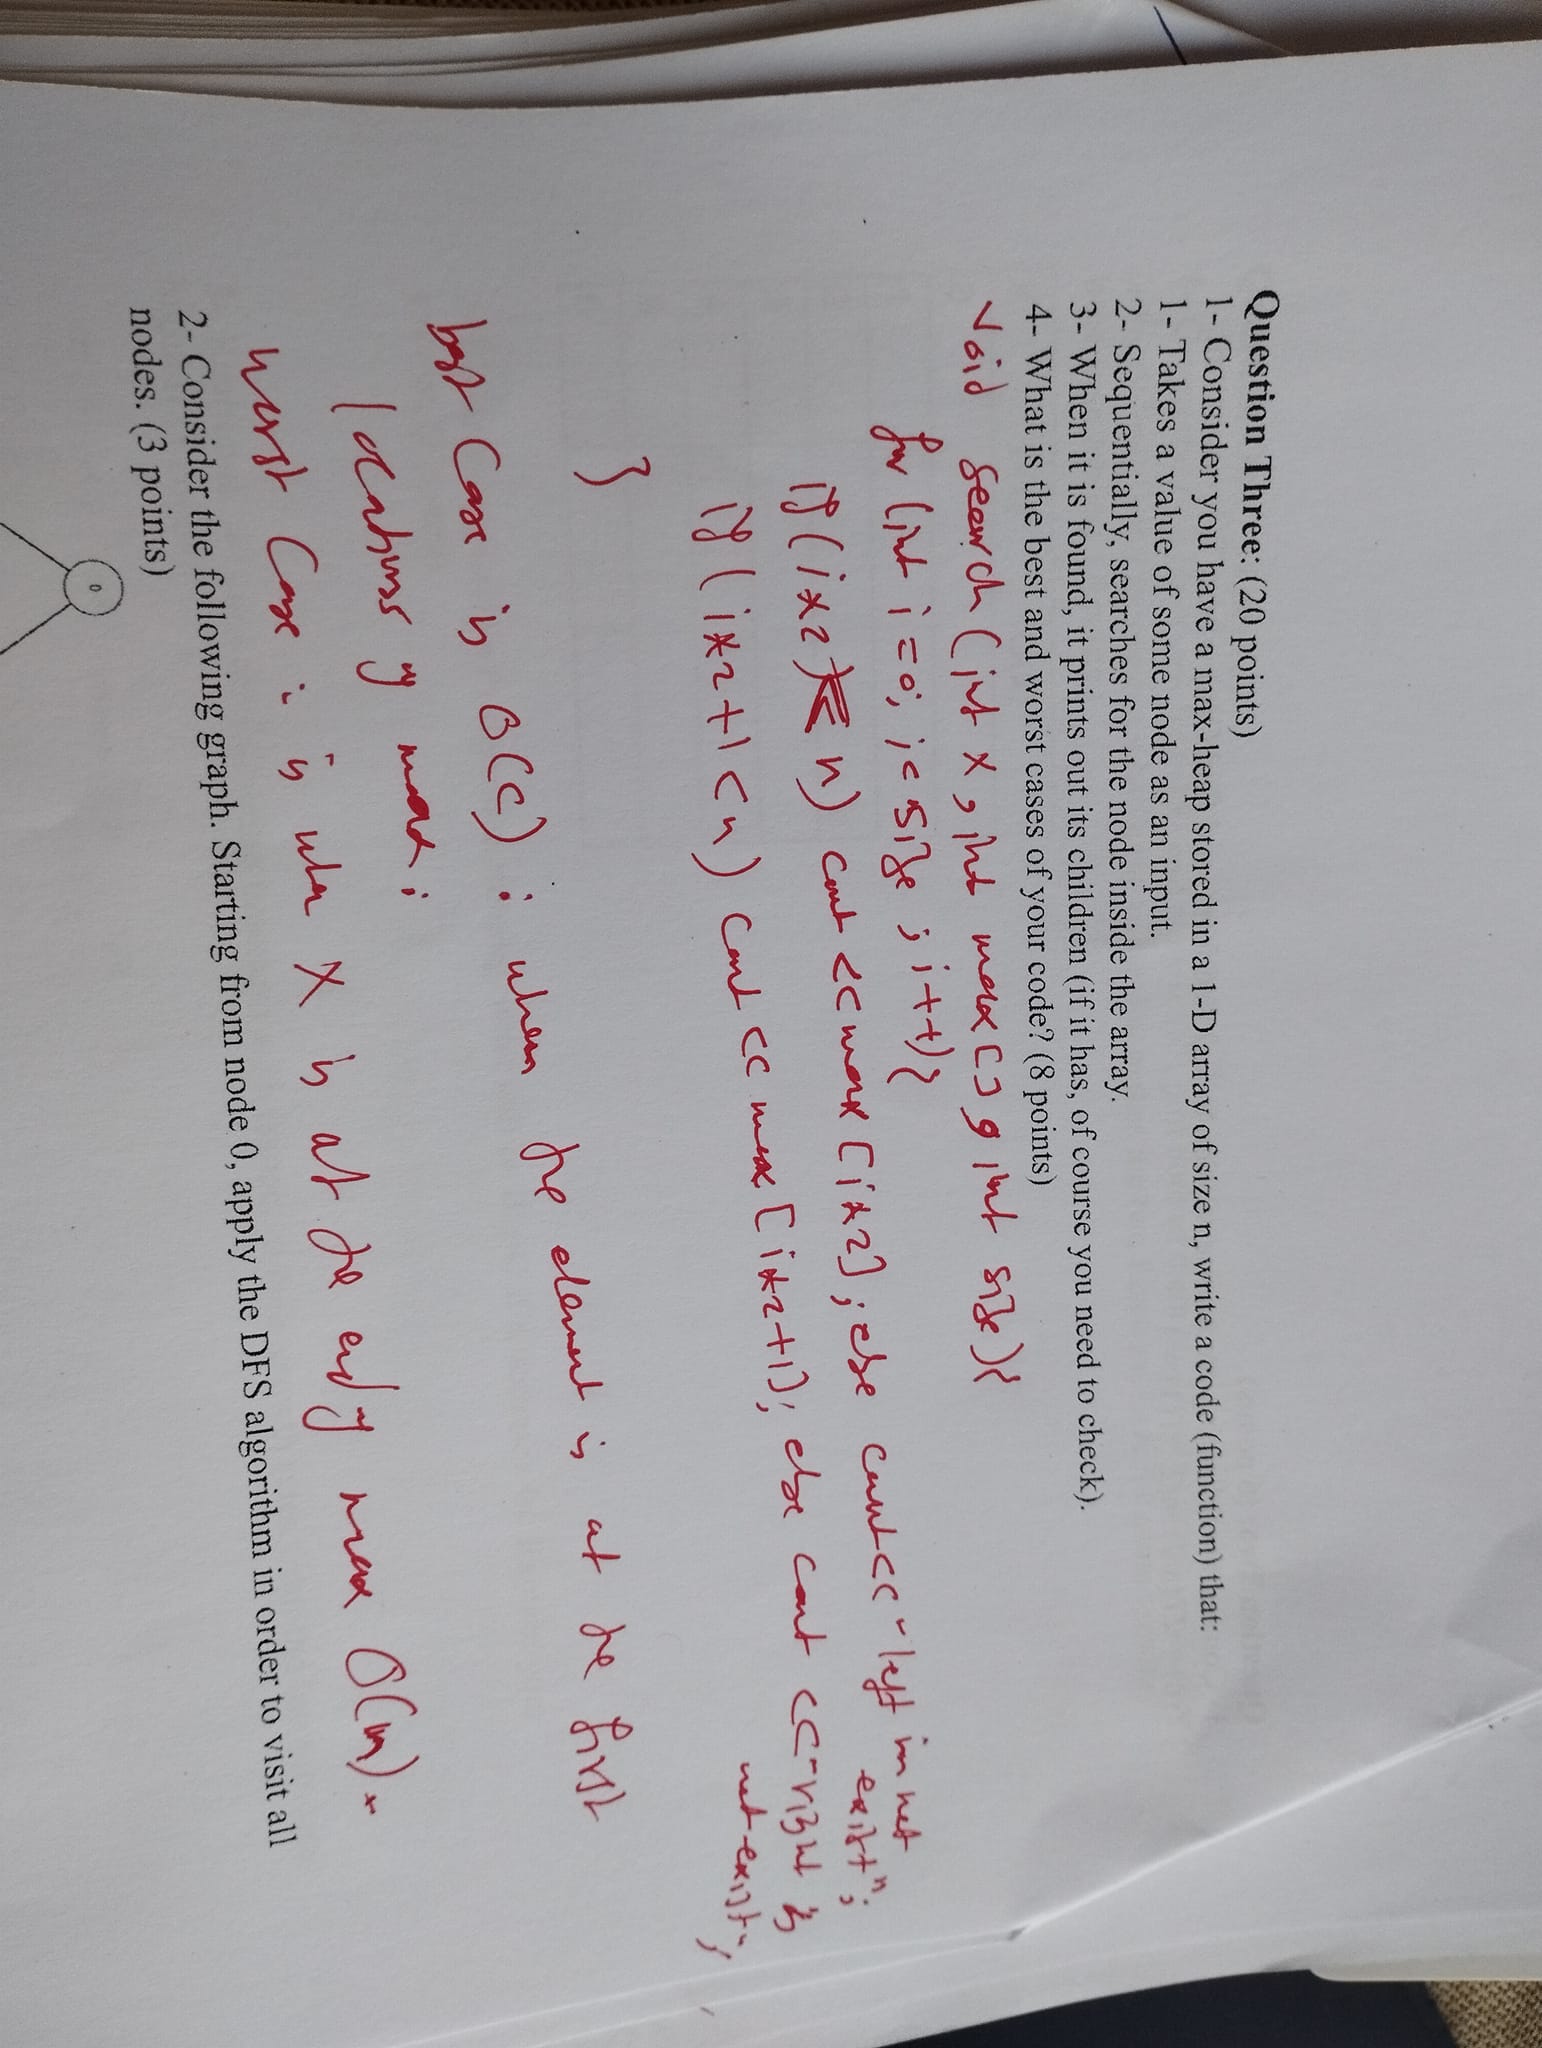 Question Three: (20 points)
1- Consider you have a max-heap stored in a 1-D array of size n, write a code (function) that:
1- Takes a value of some node as an input.
2- Sequentially, searches for the node inside the array.
3- When it is found, it prints out its children (if it has, of course you need to check).
4- What is the best and worst cases of your code? (8 points)
Void search (int x, int max[], int size){
for (int i=0; i<size; i++){
if(i*2 < n) cout << max[i*2]; else cout<<"left is not
exist";
if(i*2+1<n) cout << max[i*2+1]; else cout <<"right is
not exist";
}
best Case is O(c) : when the element is at the first
locations of max;
worst Case : is when x is at the end of max O(n).
2- Consider the following graph. Starting from node 0, apply the DFS algorithm in order to visit all
nodes. (3 points)
0